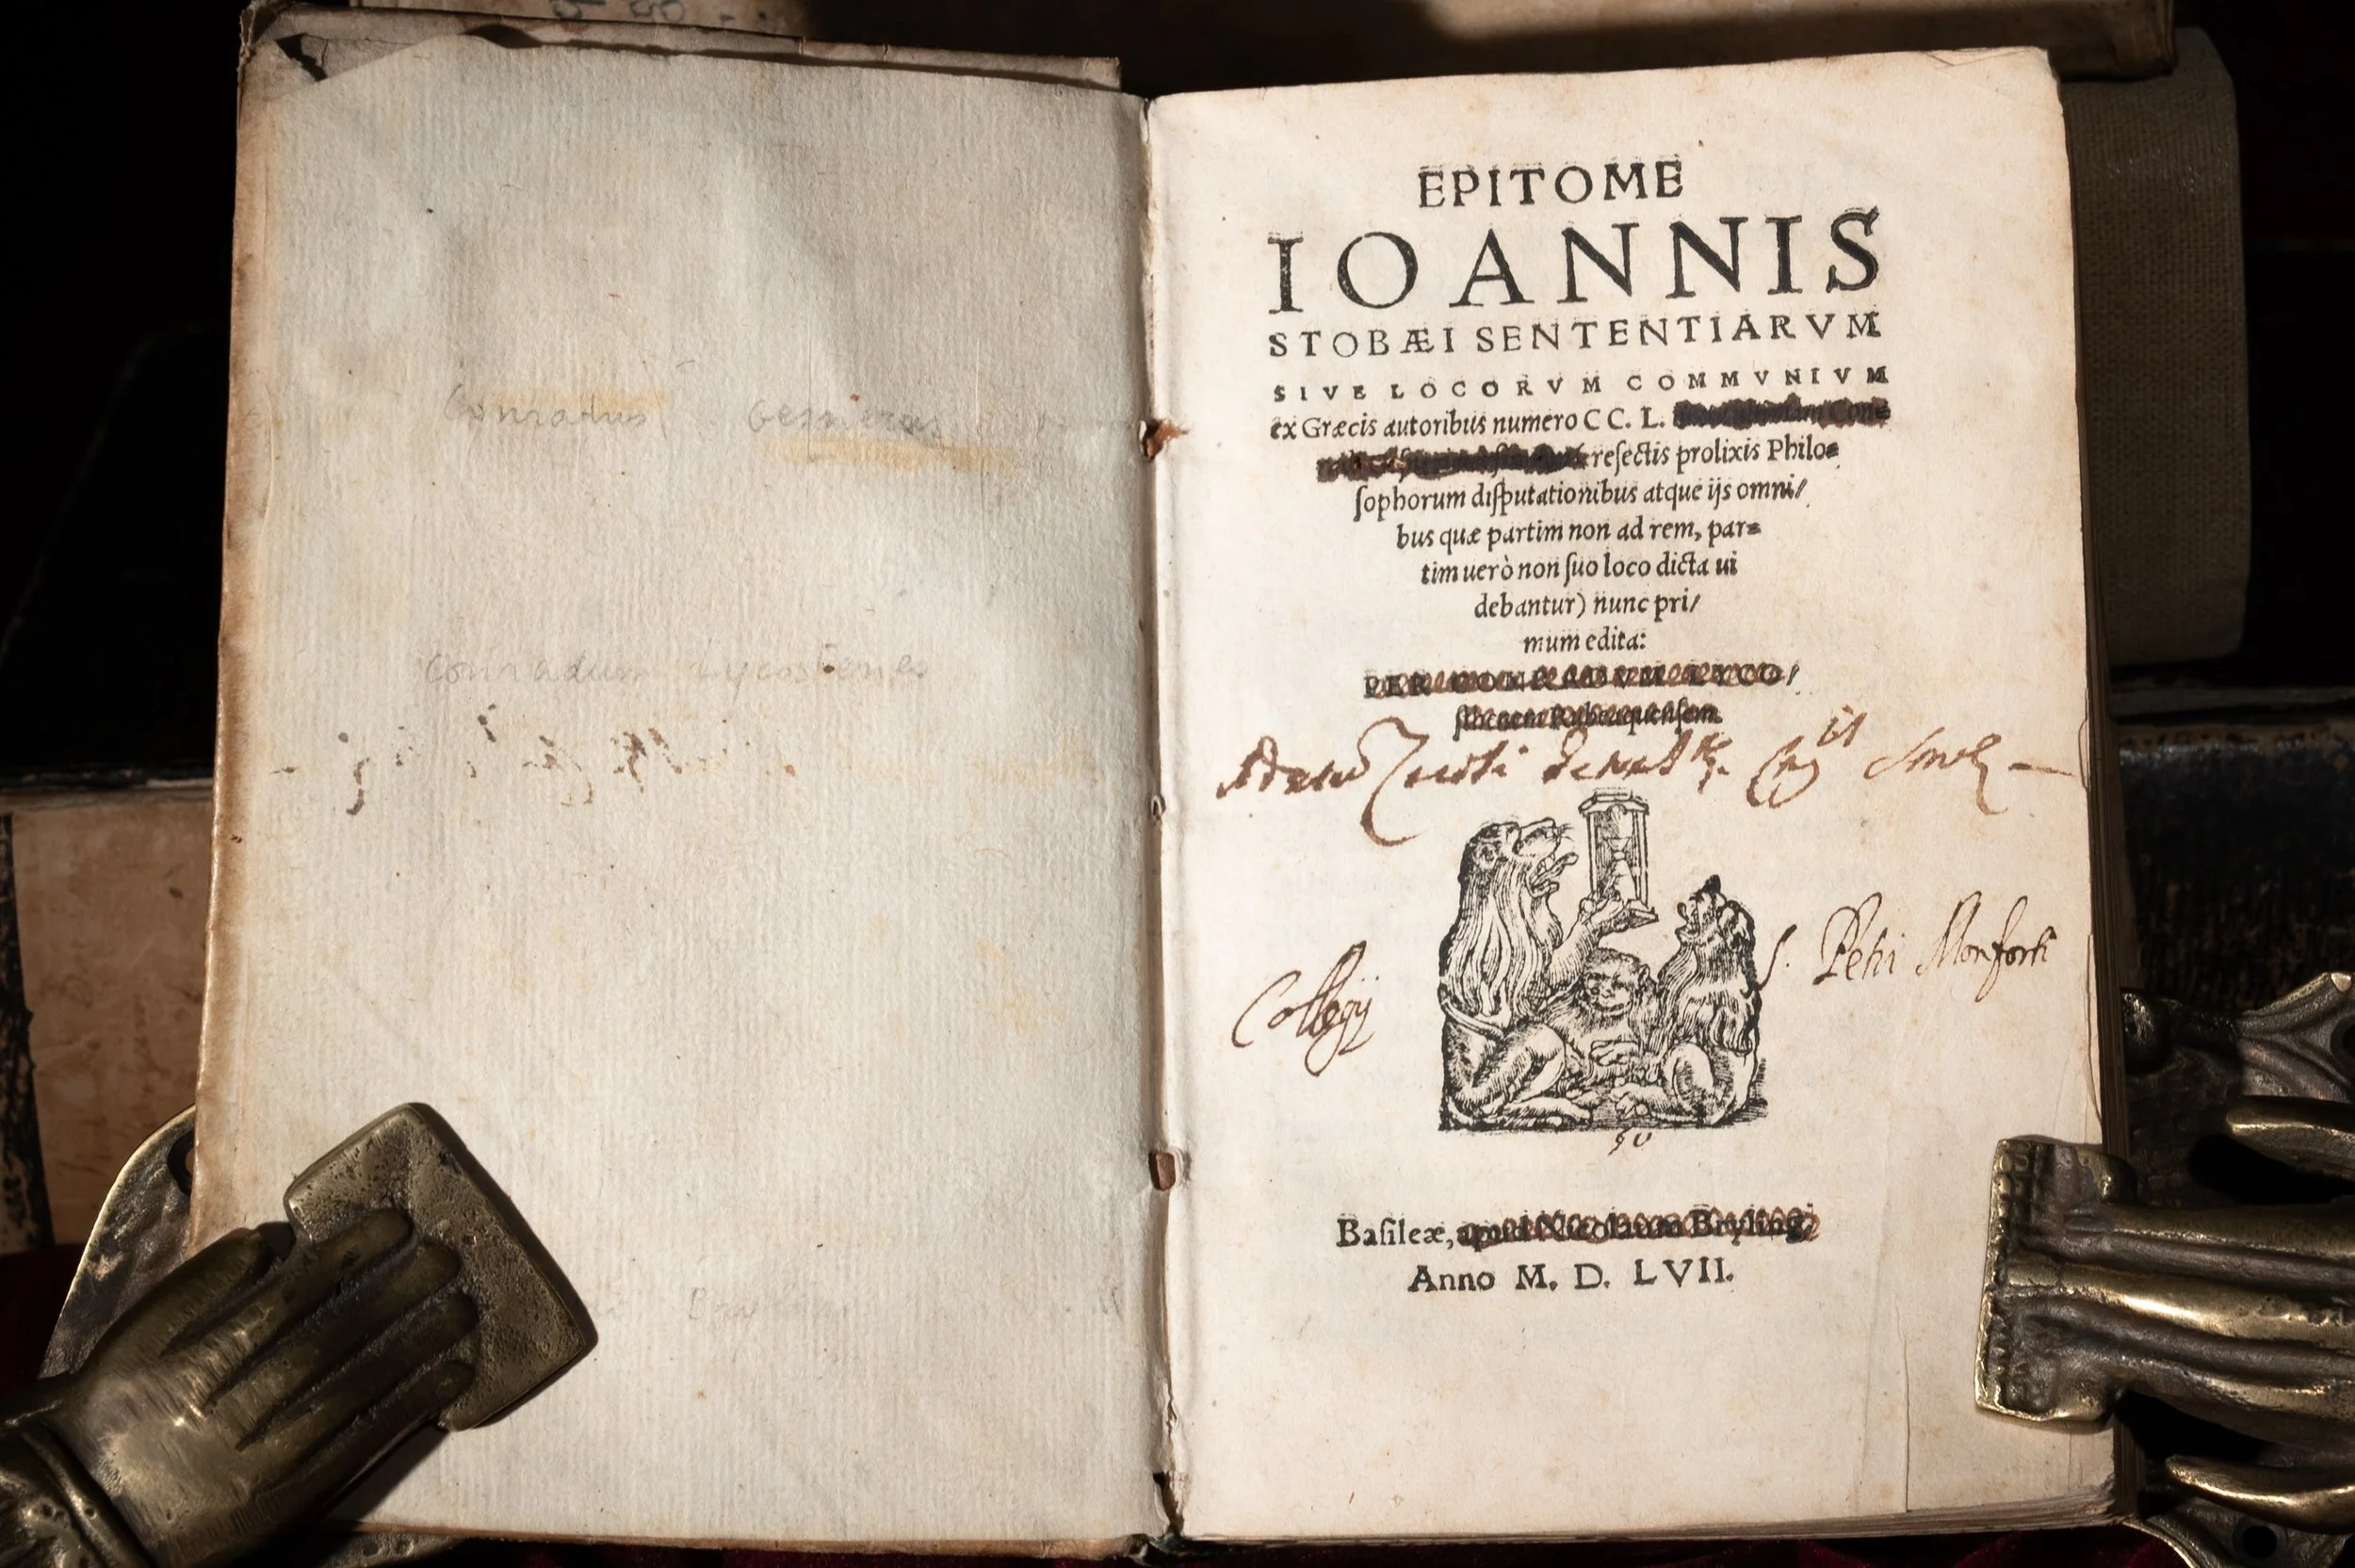 Conradus Gesnerus
Conradum Lycostenes
EPITOME
IOANNIS
STOBÆI SENTENTIARVM
SIVE LOCORVM COMMVNIVM
ex Græcis autoribus numero CC. L.
reſectis prolixis Philo=
ſophorum diſputationibus atque ijs omni/
bus quæ partim non ad rem, par=
tim uerò non ſuo loco dicta ui
debantur) nunc pri/
mum edita:
PER CONRADVM LYCO/
ſthenem Rubeaquenſem.
Collegij S. Petri Monforti
Baſileæ, apud Nicolaum Bryling.
Anno M. D. LVII.